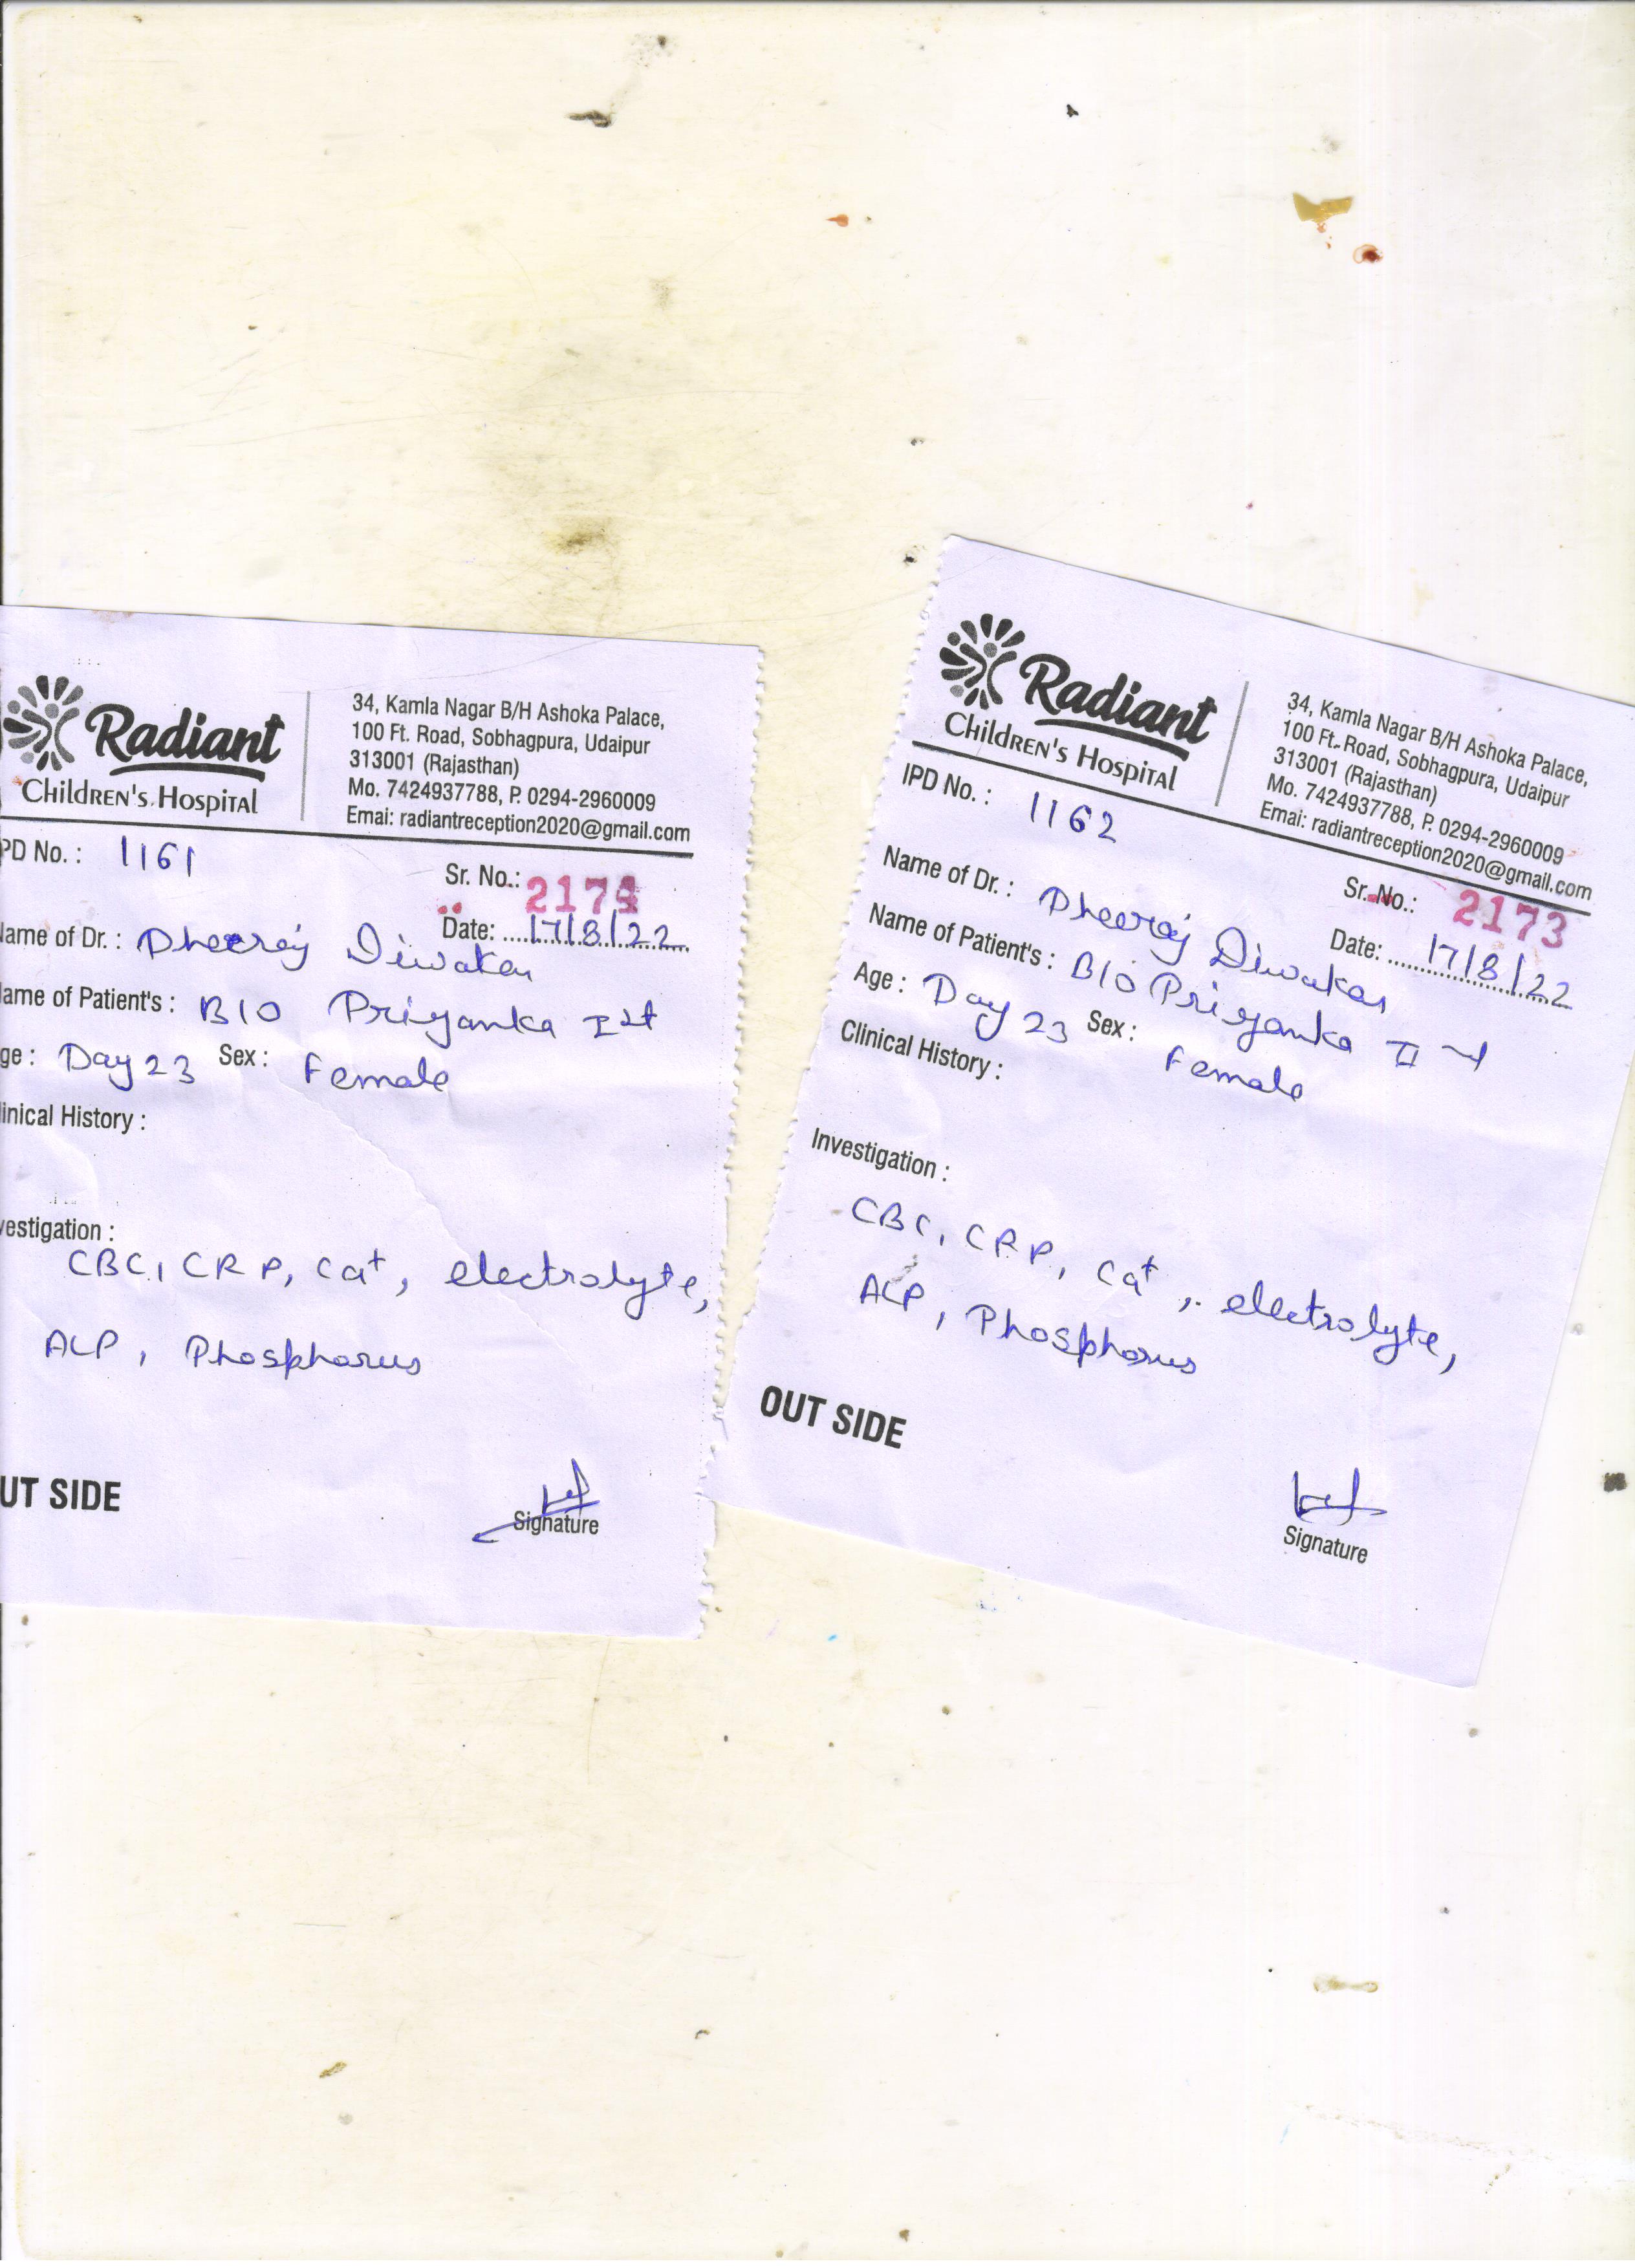 Radiant
Children's Hospital
34, Kamla Nagar B/H Ashoka Palace,
100 Ft. Road, Sobhagpura, Udaipur
313001 (Rajasthan)
Mo. 7424937788, P. 0294-2960009
Emai: radiantreception2020@gmail.com
PD No. : 1161
Sr. No.: 2174
Date: 17/8/22
Name of Dr. : Dheeraj Diwakar
ame of Patient's : B/O Priyanka Ist
ge : Day 23 Sex : Female
linical History :
vestigation :
CBC, CRP, Ca+, electrolyte,
ALP, Phosphorus
UT SIDE
Signature
Radiant
Children's Hospital
34, Kamla Nagar B/H Ashoka Palace,
100 Ft. Road, Sobhagpura, Udaipur
313001 (Rajasthan)
Mo. 7424937788, P. 0294-2960009
Emai: radiantreception2020@gmail.com
IPD No. : 1162
Sr. No.: 2173
Date: 17/8/22
Name of Dr. : Dheeraj Diwakar
Name of Patient's : B/O Priyanka II
Age : Day 23 Sex : Female
Clinical History :
Investigation :
CBC, CRP, Ca+, electrolyte,
ALP, Phosphorus
OUT SIDE
Signature